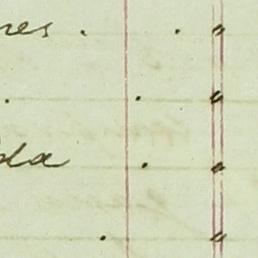 res . . "
. . "
da . "
. "